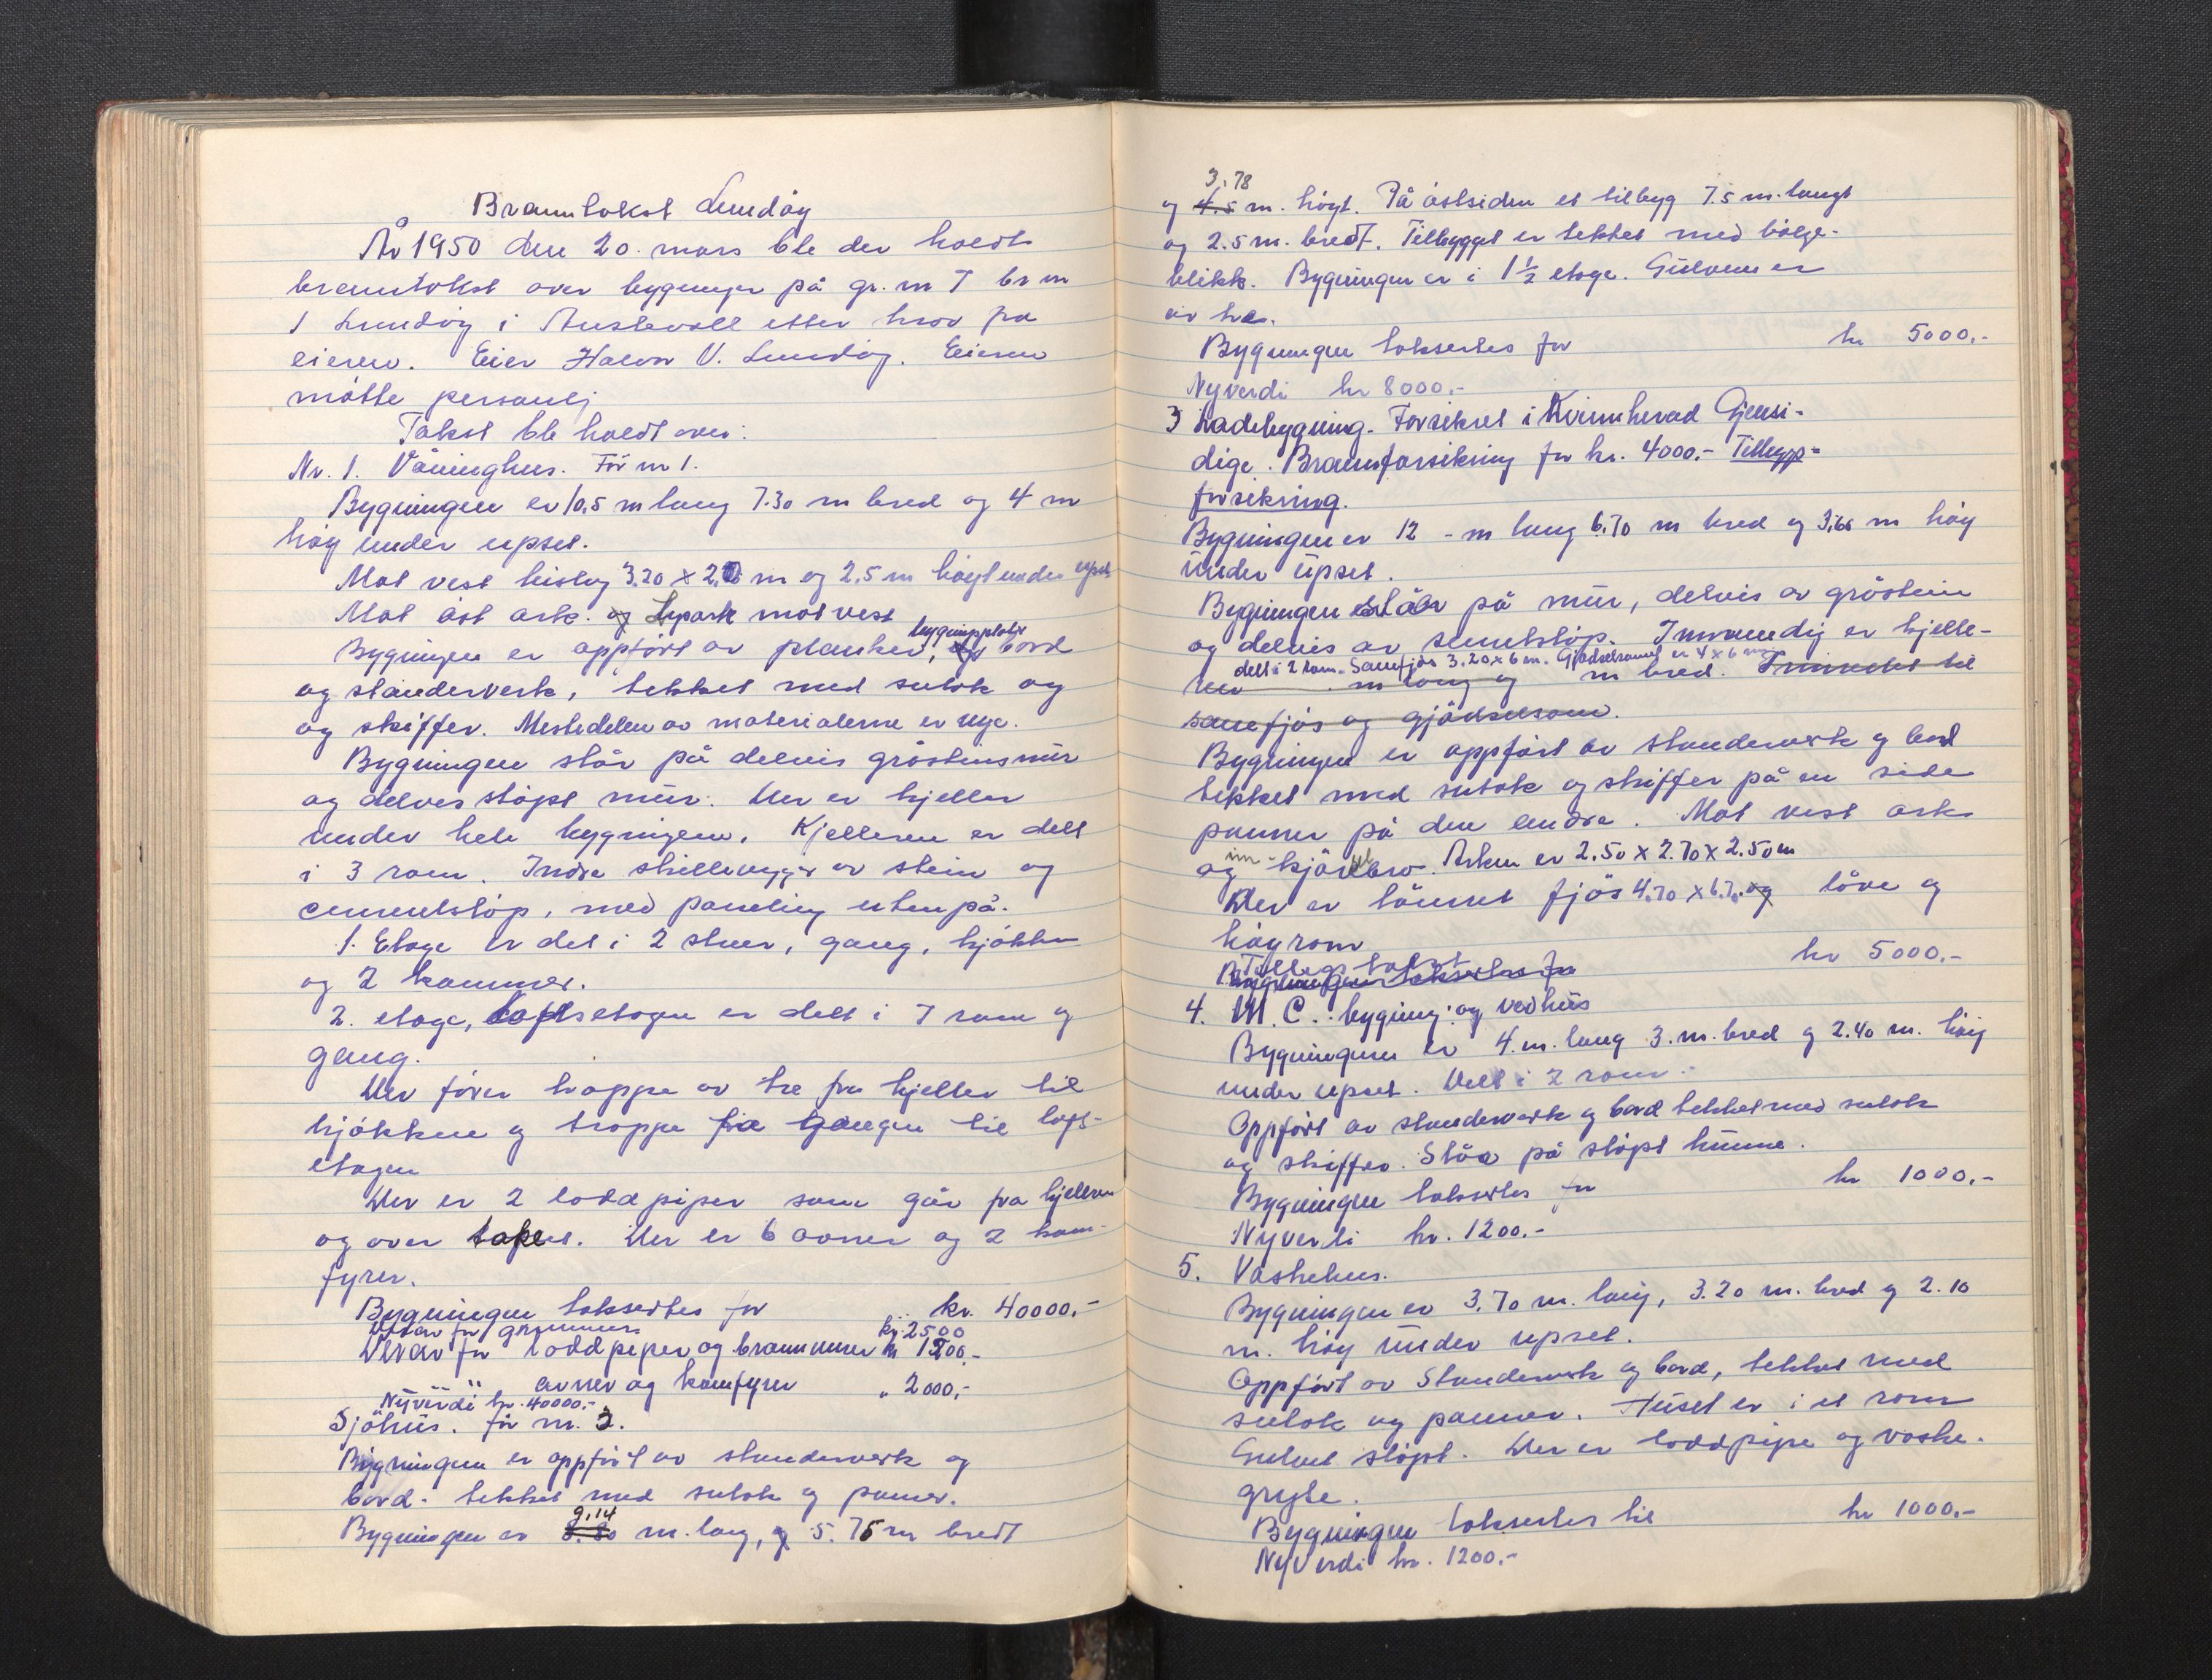 Branntakst Lundøy
År 1950 den 20. mars ble der holdt
branntakst over bygninger på gr. nr 7 br nr
1 Lundøy i Austevoll etter krav fra
eieren. Eier Halvor V. Lundøy. Eieren
møtte personlig
Takst ble holdt over:
Nr. 1. Våninghus. Før nr 1.
Bygningen er 10,5 m lang 7.30 m bred og 4 m
høg under upset.
Mot vest bislag 3.20 x 2, m og 2,5 m høgt under upset
Mot øst ark. og ark mot vest
bygningsplater
Bygningen er oppført av planker, og bord
og standerverk, tekket med sutak og
og skiffer. Mestedelen av materialerne er nye.
Bygningen står på delvis gråsteinsmur
og delves støpt mur. Der er kjeller
under hele bygningen. Kjelleren er delt
i 3 rom. Indre skillevegger av stein og
cementstøp, med paneling utenpå.
1. Etage er delt i 2 stuer, gang, kjøkken
og 2 kammer.
2. etage, loftsetagen er delt i 7 rom og
gang.
Der fører trappe av tre fra kjeller til
kjøkken og trappe fra gangen til lofts-
etagen
Der er 2 loddpiper som går fra kjelleren
og over taket. Der er 6 ovner og 2 kom-
fyrer.
Bygningen takseres for kr. 40000,-
Derav for grunnmur kr. 2500
Derav for loddpiper og brannmurer kr 1200,-
" " ovner og komfyrer " 2000,-
Nyverdi kr. 40000.-
Sjøhus. før nr. 2.
Bygningen er oppført av standerverk og
bord. tekket med sutak og panner.
9,14
Bygningen er 8.80 m. lang, og 5.75 m bredt
3,78
og 4.5 m. høgt. På østsiden et tilbyg 7.5 m. langt
og 2.5 m. bredt. Tilbygget er tekket med bølge-
blikk. Bygningen er i 1½ etage. Gulvene er
av tre.
Bygningen takseres for kr 5000,-
Nyverdi kr 8000.-
3 Ladebygning. Forsikret i Kvinnherad Gjensi-
dige. Brannforsikring for kr. 4000.- Tilleggs-
forsikring.
Bygningen er 12 - m lang 6.70 m bred og 3,66 m høg
under upset.
Bygningen står på mur, delvis av gråstein
og delvis av sementstøp. Innvendig er kjelle-
delt i 2 rom. Sauefjøs 3.20 x 6 m. Gjødselrommet er 4 x 6 m
ren m lang og m bred. Innredet til
sauefjøs og gjødselrom.
Bygningen er oppført av standerverk og bord
tekket med sutak og skiffer på en side
panner på den andre. Mot vest ark
og innkjørselbro. Arken er 2.50 x 2.70 x 2.50 m
Der er tømret fjøs 4.70 x 6.7. og løve og
høyrom
Tilleggstakst kr 5000.-
Bygningen takseres for
4. W. C. bygning og vedhus
Bygningen er 4. m. lang 3. m. bred og 2.40 m. høg
under upset. Delt i 2 rom.
Oppført av standerverk og bord tekket med sutak
og skiffer. Står på støpt kumme.
Bygningen takseres for kr 1000,-
Nyverdi kr. 1200.-
5. Vaskehus.
Bygningen er 3.70 m. lang, 3.20 m. bred og 2.10
m. høg under upset.
Oppført av Standerverk og bord, tekket med
sutak og panner. Huset er i et rom
Gulvet støpt. Der er loddpipe og vaske-
gryte.
Bygningen takseres til kr 1000,-
Nyverdi kr. 1200.-